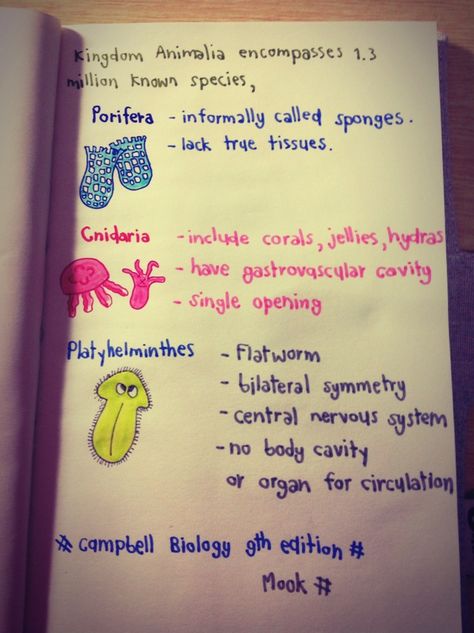 Kingdom Animalia encompasses 1.3
million known species,
Porifera - informally called sponges.
- lack true tissues.
Cnidaria - include corals, jellies, hydras
- have gastrovascular cavity
- single opening
Platyhelminthes - Flatworm
- bilateral symmetry
- central nervous system
- no body cavity
or organ for circulation
# Campbell Biology 9th edition #
Mook #